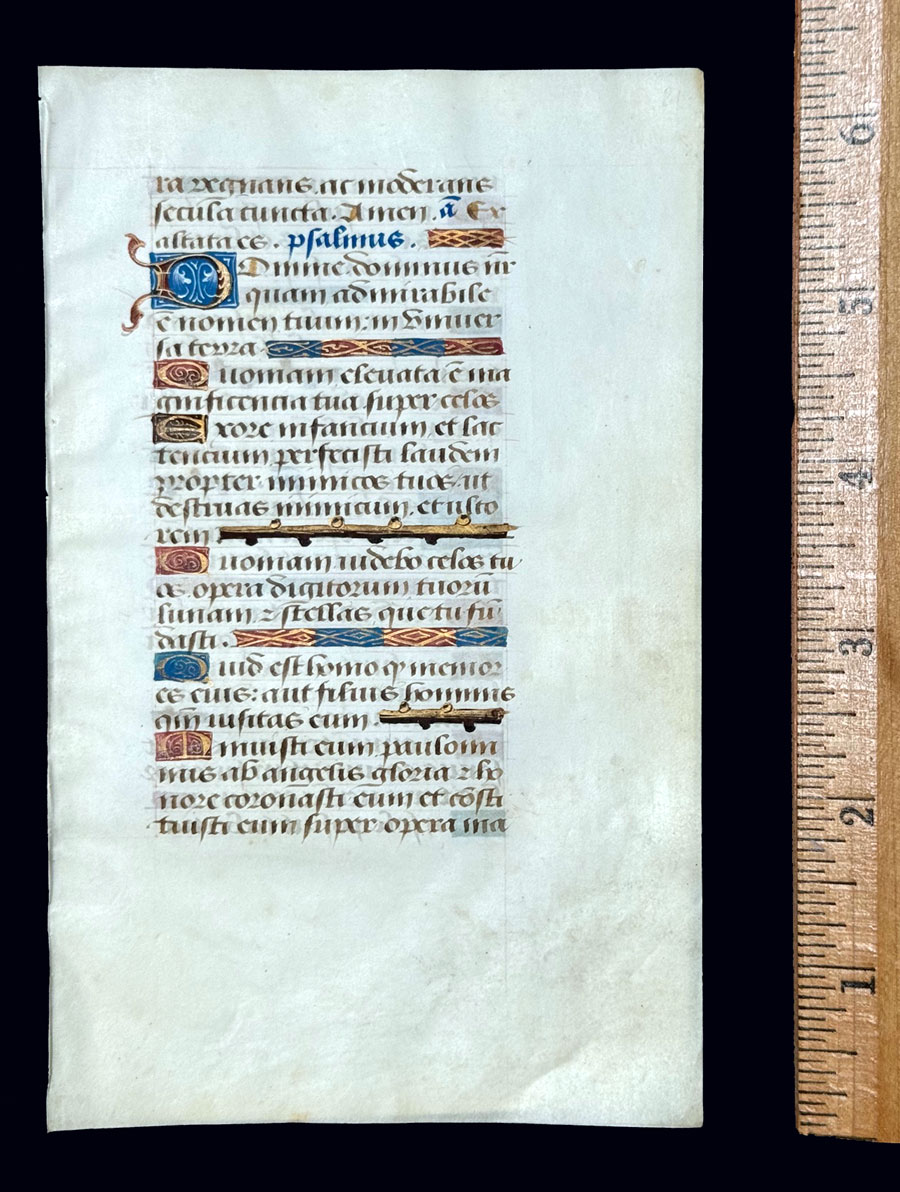 ra regnans. ac moderans
secula cuncta. Amen. ā Ex
altata es. psalmus.
Domine dominus nr̄
quam admirabile
ē nomen tuum: in vniuer
sa terra
Quoniam eleuata ē ma
gnificencia tua super celos
Exore infancium et lac
tencium perfecisti laudem
propter inimicos tuos. ut
destruas inimicum, et ulto
rem
Quoniam uidebo celos tu
os. opera digitorum tuorū
lunam ⁊ stellas que tu fu
dasti.
Quid est homo qp memor
es eius: aut filius hominis
qm̄ uisitas eum.
Minuisti eum paulomi
nus ab angelis gloria ⁊ ho
nore coronasti eum et cōsti
tuisti eum super opera ma
1
2
3
4
5
6